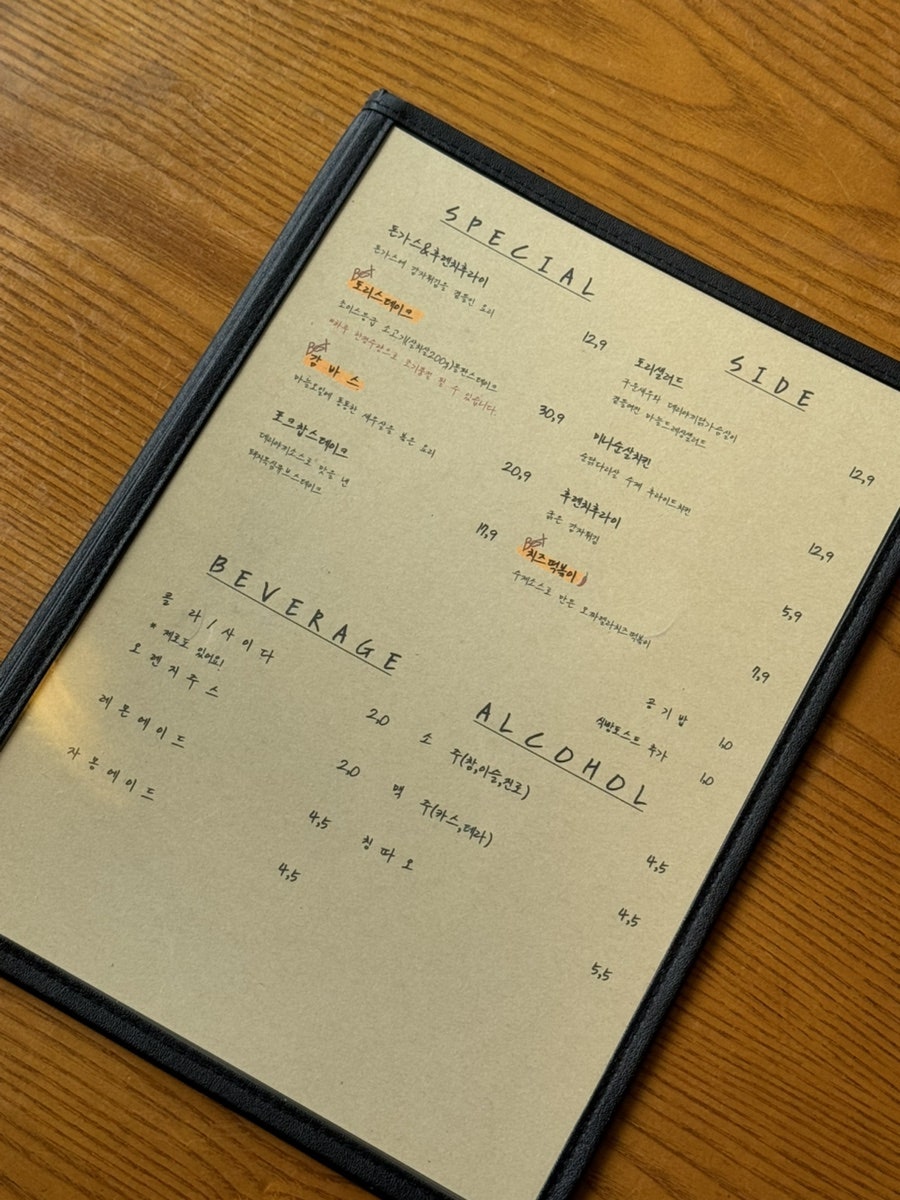 SPECIAL
돈가스&후렌치후라이
돈가스에 감자튀김을 곁들인 요리
12,9
Best
토리스테이크
초이스등급 소고기(살치살200g)통판스테이크
*하루 한정수량으로 조기품절 될 수 있습니다.
30,9
Best
감바스
마늘오일에 통통한 새우살을 볶은 요리
20,9
포크찹스테이크
데리야끼소스로 맛을 낸
돼지등심큐브스테이크
17,9
SIDE
토리샐러드
구운새우와 데리야끼닭가슴살이
곁들여진 마늘드레싱샐러드
12,9
미니순살치킨
순닭다리살 수제 후라이드치킨
12,9
후렌치후라이
굵은 감자튀김
5,9
Best
치즈떡볶이
수제소스로 만든 모짜렐라치즈떡볶이
7,9
공기밥
1,0
식빵토스트 추가
1,0
BEVERAGE
콜라/사이다
* 제로도 있어요!
2,0
오렌지주스
2,0
레몬에이드
4,5
자몽에이드
4,5
ALCOHOL
소 주(참,이슬,진로)
4,5
맥 주(카스,테라)
4,5
칭따오
5,5